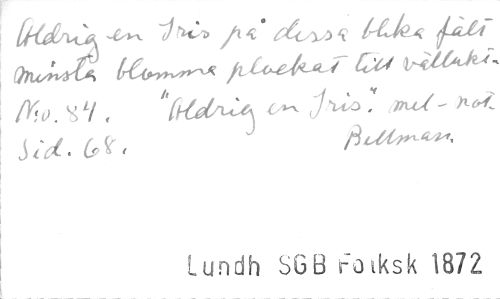 Aldrig en Iris på dessa bleka fält
minsta blomma plockat till vällukt.
N:o. 84. "Aldrig en Iris". mel-not.
Sid. 68. Bellman.
Lundh SGB Folksk 1872